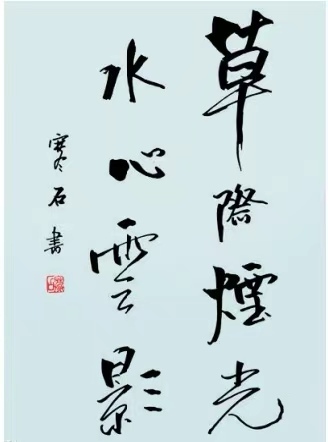 草際煙光
水心雲影
寒石書